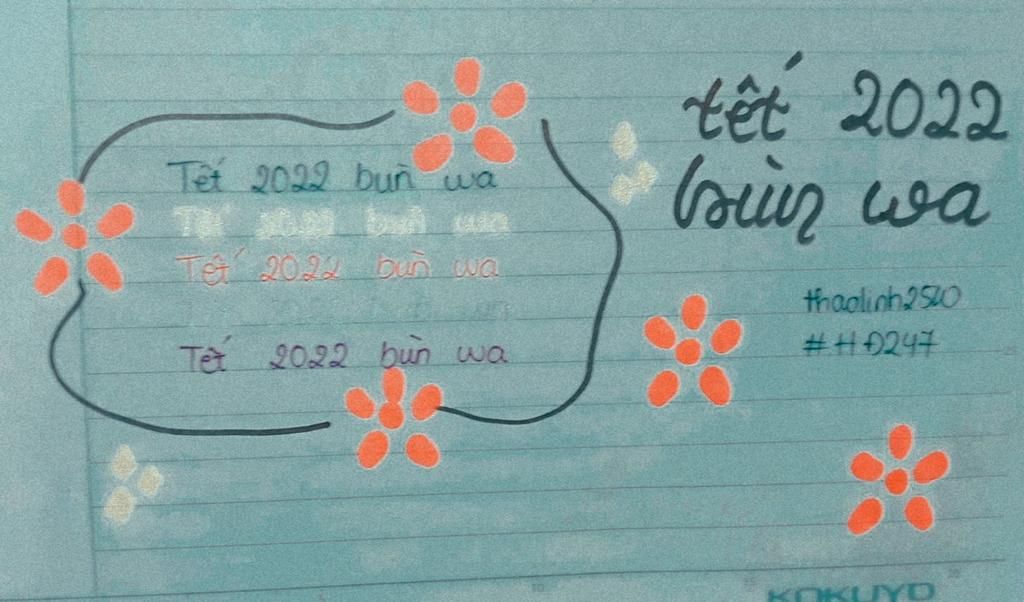 Tết 2022 buǹ wa
Tết 2022 buǹ wa
Tết 2022 buǹ wa
2022 buǹ wa
Tết 2022 bùn wa
tết 2022
bùn wa
thaolinh2510
#HĐ247
KOKUYO